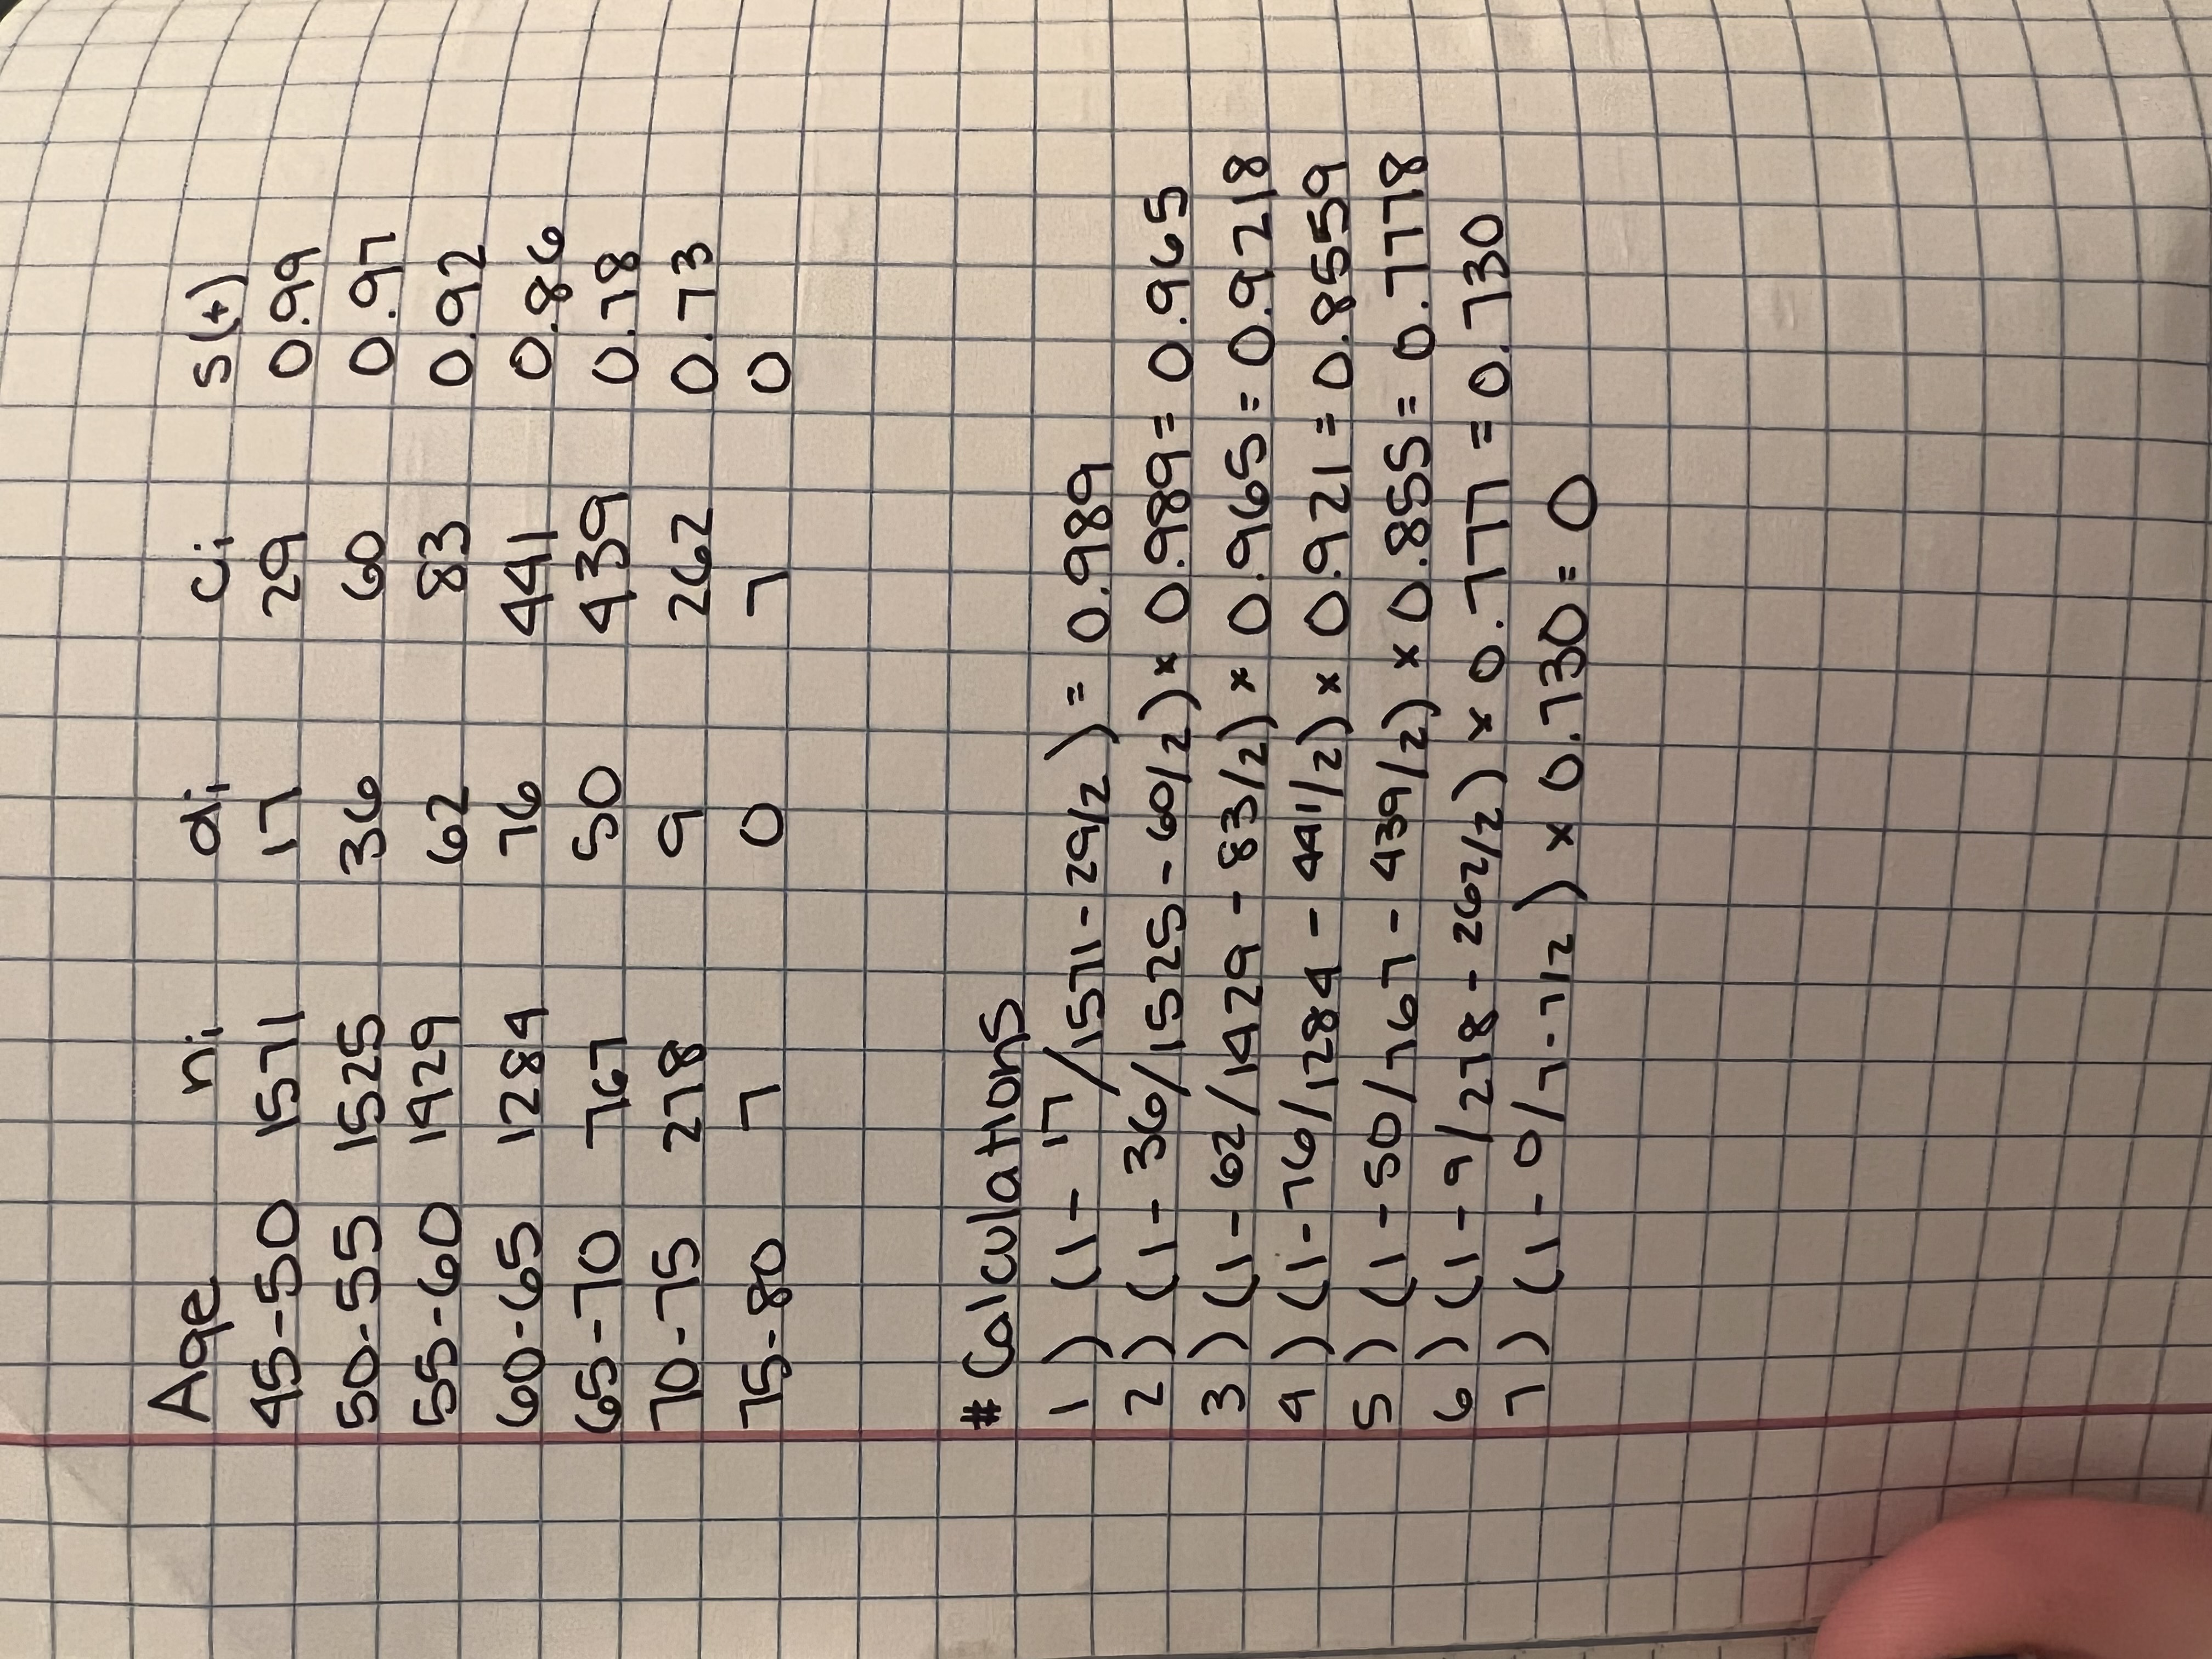 Age ni di ci s(t)
45-50 1571 17 29 0.99
50-55 1525 36 60 0.97
55-60 1429 62 83 0.92
60-65 1284 76 441 0.86
65-70 767 50 439 0.78
70-75 278 9 262 0.73
75-80 7 0 7 0
# Calculations
1) (1 - 17/1571 - 29/2) = 0.989
2) (1 - 36/1525 - 60/2) × 0.989 = 0.965
3) (1 - 62/1429 - 83/2) × 0.965 = 0.9218
4) (1 - 76/1284 - 441/2) × 0.921 = 0.8559
5) (1 - 50/767 - 439/2) × 0.855 = 0.7778
6) (1 - 9/278 - 262/2) × 0.777 = 0.730
7) (1 - 0/7 - 7/2) × 0.730 = 0